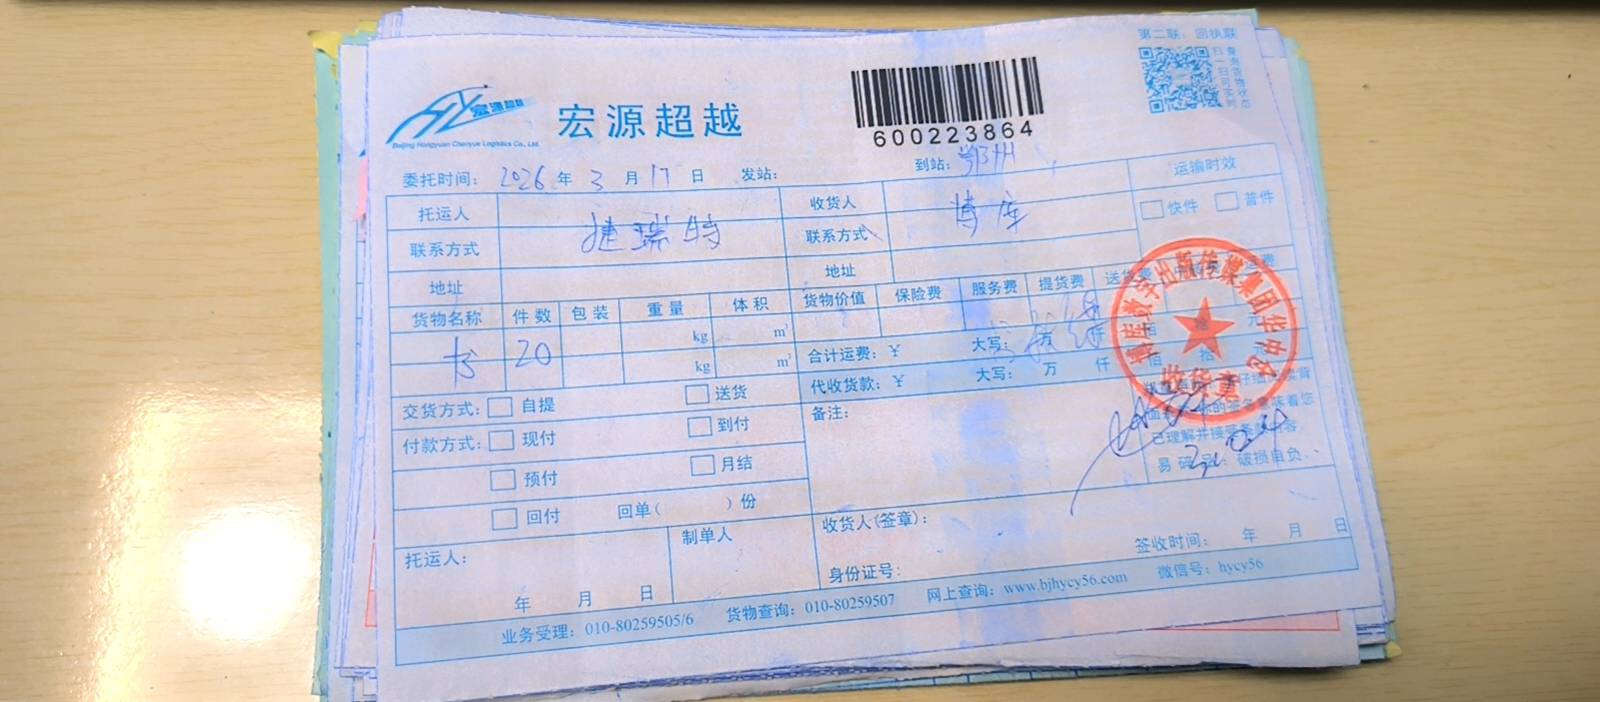 第二联：回执联
宏源超越
Beijing Hongyuan Chaoyue Logistics Co., Ltd.
宏源超越
600223864
扫一扫 查询货物 可实时状态
委托时间： 2026 年 3 月 17 日 发站： 到站：鄂州
托运人 捷瑞特 收货人 博库 运输时效
联系方式 联系方式 快件 普件
地址 地址
货物名称 件数 包装 重量 体积 货物价值 保险费 服务费 提货费 送货费
书 20 kg m³ 合计运费：￥ 大写： 万 仟 佰 拾 元
kg m³ 代收货款：￥ 大写： 万 仟 佰 拾
交货方式： 自提 送货 备注：
付款方式： 现付 到付
预付 月结
回付 回单( )份
已理解并接受
破损自负
博库数字出版传媒集团华中中心
收货章
托运人： 制单人 收货人(签章)：
年 月 日 身份证号： 签收时间： 年 月 日
业务受理：010-80259505/6 货物查询：010-80259507 网上查询：www.bjhycy56.com 微信号：hycy56